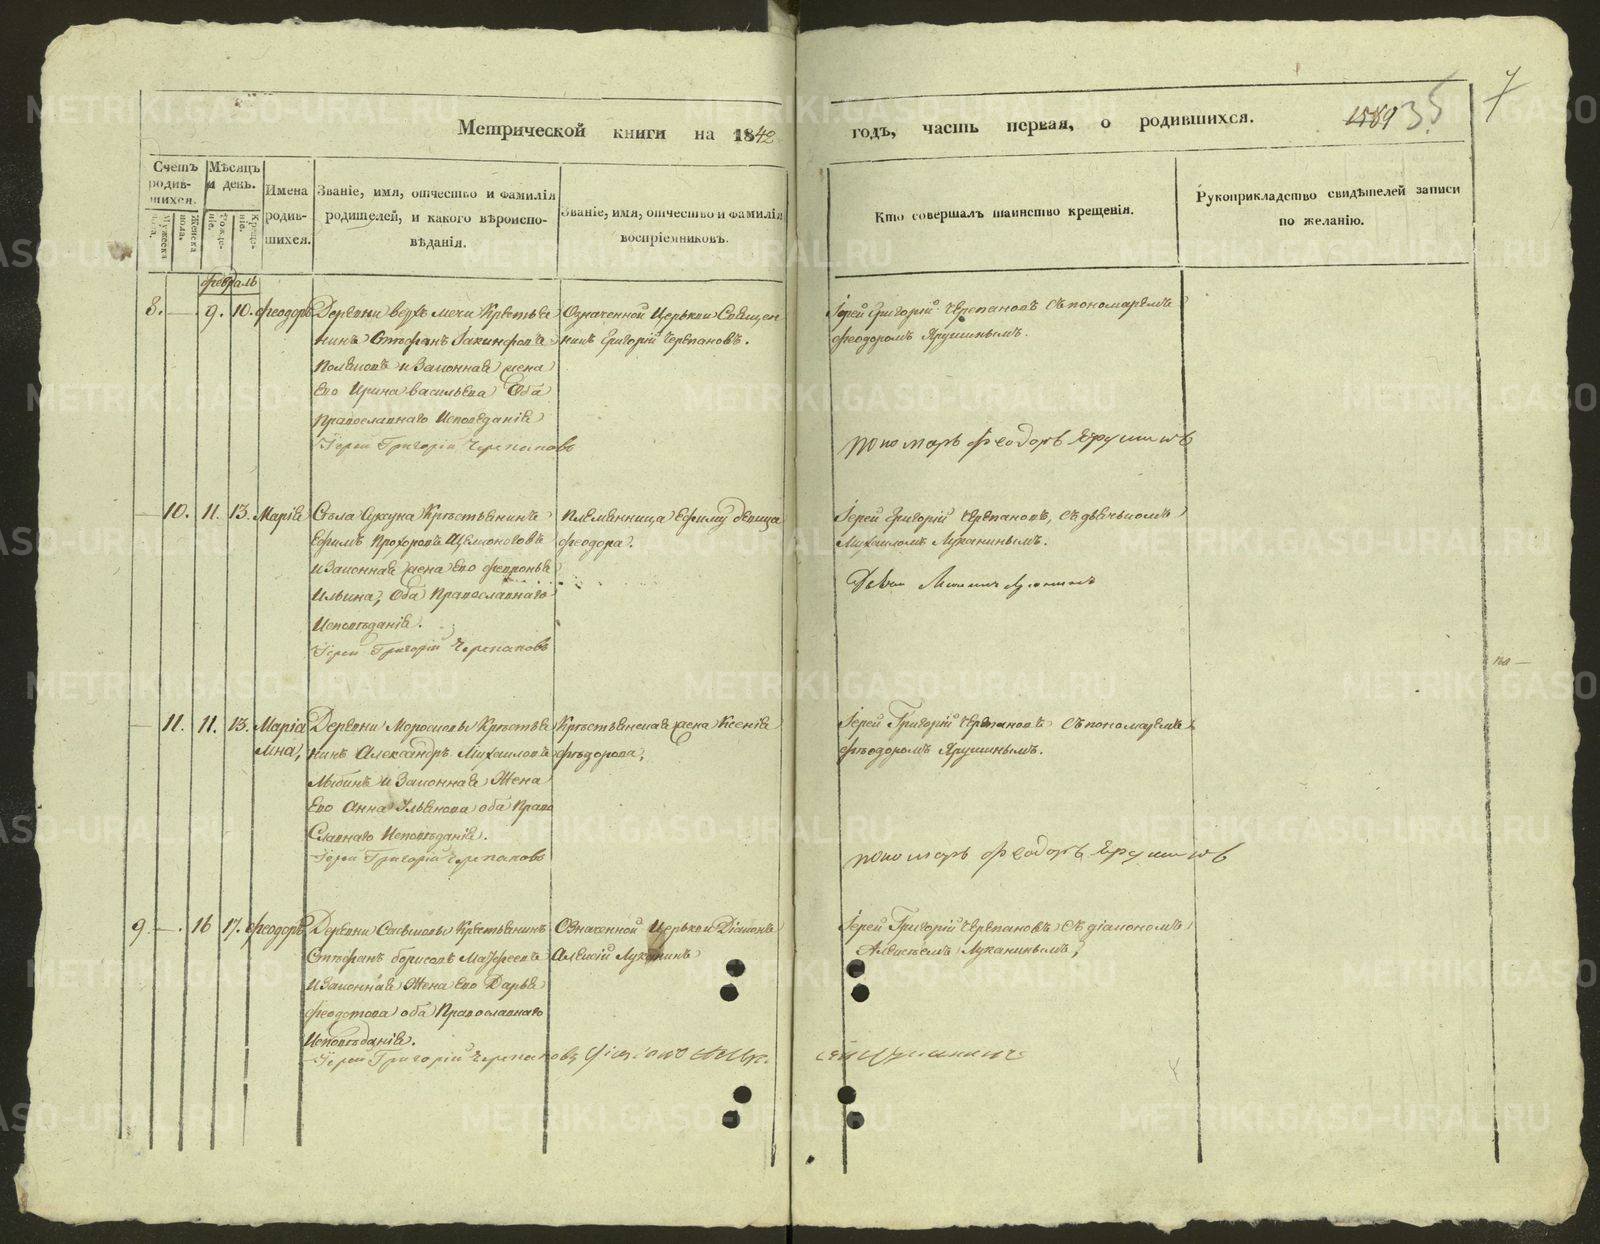 Метрической книги на 1842
годъ, часть первая, о родившихся.
1589 35 7
Счетъ родив-шихся.
Мужеска пола.
Женска пола.
Мѣсяцъ и день.
Рожде-нія.
Креще-нія.
Имена родив-шихся.
Званіе, имя, отчество и фамилія
родителей, и какого вѣроиспо-
вѣданія.
Званіе, имя, отчество и фамилія
воспріемниковъ.
Кто совершалъ таинство крещенія.
Рукоприкладство свидѣтелей записи
по желанію.
февраль
8. — 9. 10. феодоръ
Деревни верхъ Крестья
нинъ Стефанъ
и Законная жена
Его Ирина васильева Оба
Православнаго Исповѣданія
Іерей Григорій Черепановъ
Означенной Церькви Священ
никъ Григорій Черепановъ.
Іерей Григорій Черепановъ съ пономаремъ
феодоромъ Ярушинымъ.
пономарь феодоръ Ярушинъ
— 10. 11. 13. Марія
Села Суксуна Крестьянинъ
Ефимъ Прохоровъ
и Законная жена Его
Ильина, Оба Православнаго
Исповѣданія.
Іерей Григорій Черепановъ
племянница Ефиму девица
феодора.
Іерей Григорій Черепановъ, съ дьячькомъ
Михаиломъ Луканинымъ.
— 11. 11. 13. Маріа
мна,
Деревни Морозковы Крестья
нинъ Александръ Михаиловъ
и Законная Жена
Его Анна Ульянова оба Право
Славнаго Исповѣданія.
Іерей Григорій Черепановъ
Крестьянская жена Ксенія
федорова,
Іерей Григорій Черепановъ съ пономаремъ
феодоромъ Ярушинымъ.
пономарь феодоръ Ярушинъ
9. — 16 17. феодоръ
Деревни Крестьянинъ
Стефанъ борисовъ Матфеевъ
и Законная Жена Его Дарья
феодотова оба Православнаго
Исповѣданія.
Іерей Григорій Черепановъ
Означенной Церькви Діаконъ
Алексій Луканинъ
Іерей Григорій Черепановъ съ діакономъ
Алексѣемъ Луканинымъ,
METRIKI.GASO-URAL.RU